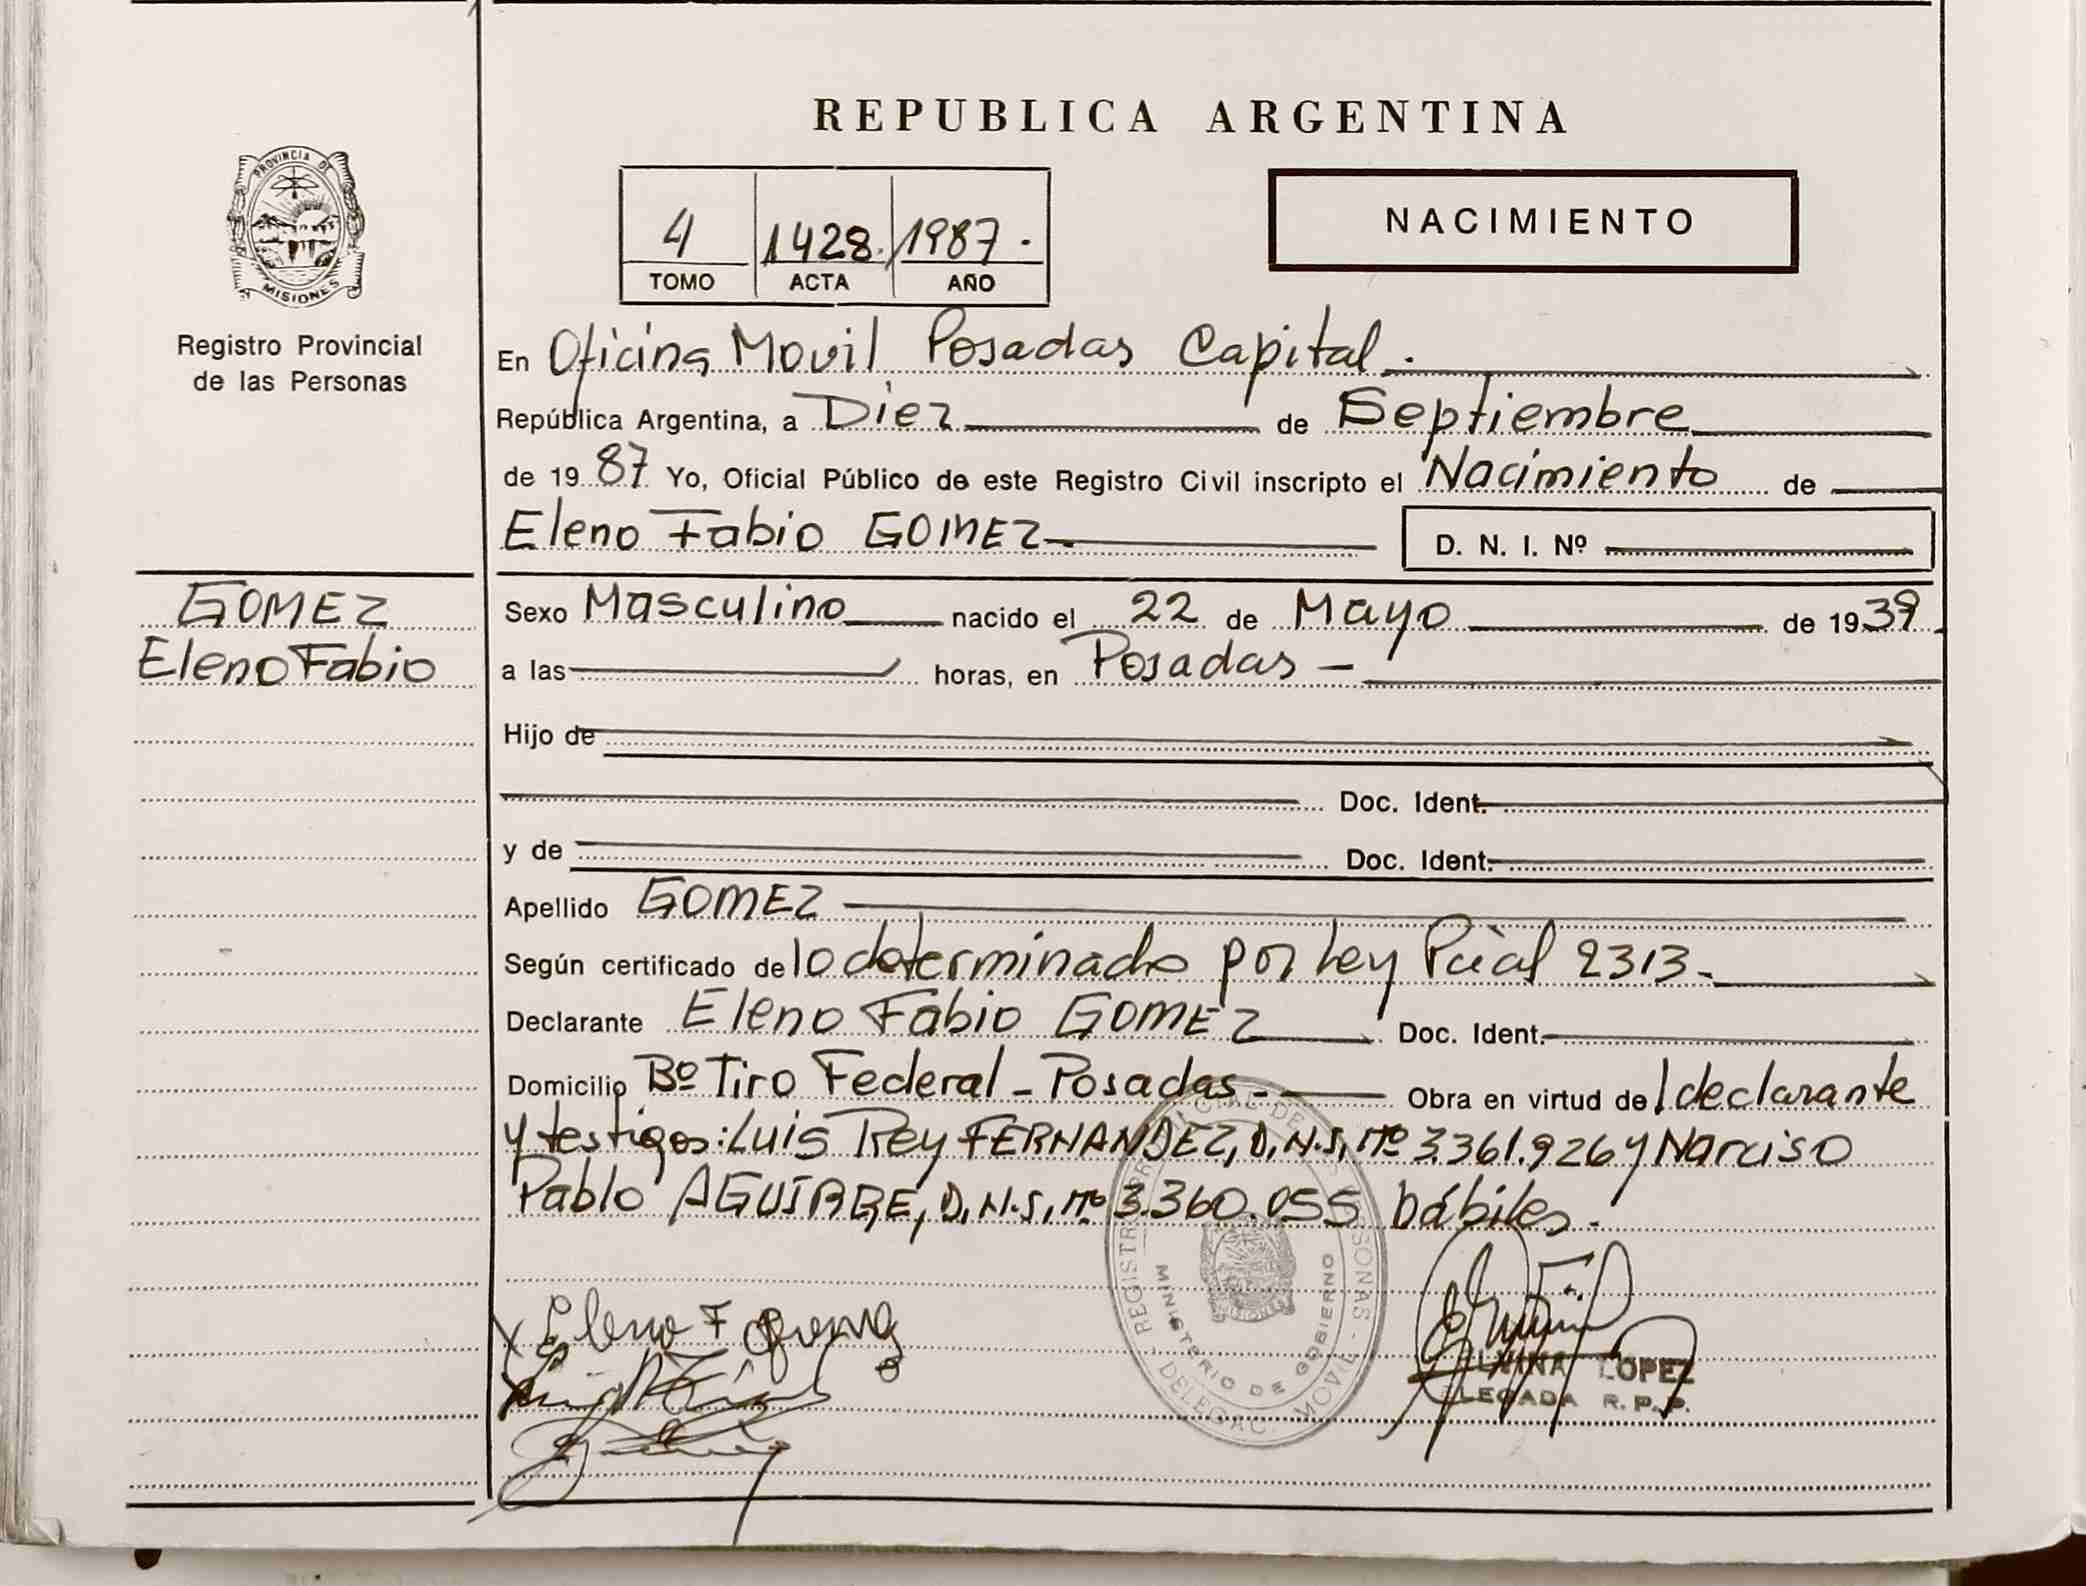 REPUBLICA ARGENTINA
PROVINCIA DE
MISIONES
Registro Provincial
de las Personas
4 1428. 1987.
TOMO ACTA AÑO
NACIMIENTO
En Oficina Movil Posadas Capital.
República Argentina, a Diez de Septiembre
de 1987 Yo, Oficial Público de este Registro Civil inscripto el Nacimiento de
Eleno Fabio GOMEZ D. N. I. Nº
GOMEZ
Eleno Fabio
Sexo Masculino nacido el 22 de Mayo de 1939
a las horas, en Posadas
Hijo de
Doc. Ident.
y de Doc. Ident.
Apellido GOMEZ
Según certificado de lo determinado por Ley Pcial 2313.
Declarante Eleno Fabio GOMEZ Doc. Ident.
Domicilio Bº Tiro Federal - Posadas - Obra en virtud del declarante
y testigos: Luis Rey FERNANDEZ, D.N.I. nº 3.361.926 y Narciso
Pablo AGUIRRE, D.N.I. nº 3.360.055 hábiles.
Eleno F
LOPEZ
R. P. P.
MINISTERIO DE GOBIERNO
DELEGAC. MOVIL